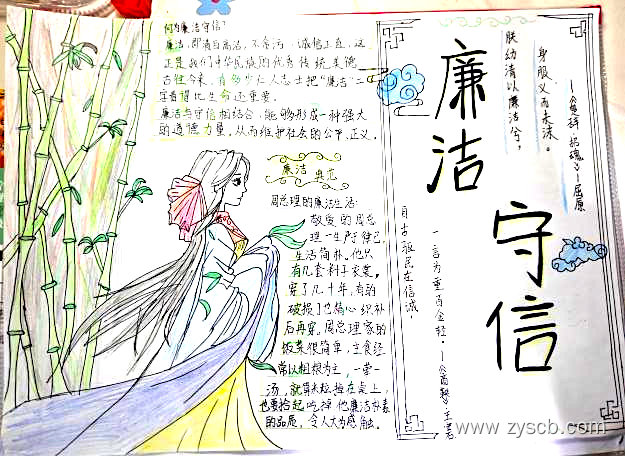 何为廉洁守信?
廉洁,即清白高洁,不贪污,诚信正直,这
正是我们中华民族的优秀传统美德。
古往今来,有多少仁人志士把“廉洁”二
字看得比生命还重要。
廉洁与守信相结合,能够形成一种强大
的道德力量。从而维护社会的公平、正义。
廉洁 典范
周总理的廉洁生活:
敬爱的周总
理一生严于律己,
生活简朴。他只
有几套料子衣裳,
穿了几十年,有的
破损了也精心织补
后再穿。周总理家的
饭菜很简单,主食经
常以粗粮为主,一荤一
汤,就算米粒掉在桌上,
也要拾起吃掉 他廉洁朴素
的品质,令人大为感触。
廉洁
守信
朕幼清以廉洁兮,
身服义而未沫。
——《楚辞·招魂》——屈原
自古驱民在信诚
一言为重百金轻。——《商鞅》王安石
www.zyscb.com